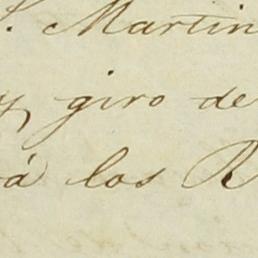 S. Martin
y giro de
á los R